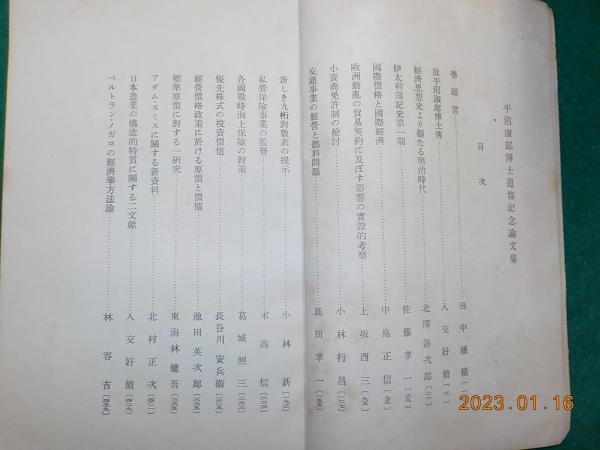 平沼淑郎博士追悼記念論文集
目次
卷頭言 田中穗積
故平沼淑郎博士傳 入交好脩
經濟思想史より觀たる明治時代 北澤新次郎
伊太利簿記史第一期 佐藤孝一
國際價格と國際經濟 中島正信
歐洲動亂の貿易契約に及ぼす影響の實證的考察 上坂酉三
小賣商免許制の檢討 小林行昌
交通事業の經營と燃料問題 島田孝一
新しき九桁對數表の提示 小林新
私營保險事業の監督 末高信
各國戰時海上保險の對策 葛城照三
優先株式の投資價値 長谷川安兵衞
經營價格政策に於ける原價と價値 池田英次郎
標準原價に對する一研究 東海林健吾
アダム・スミスに關する新資料 北村正次
日本農業の構造的特質に關する二文獻 入交好脩
ベルトラン・ノガロの經濟學方法論 林容吉
2023.01.16